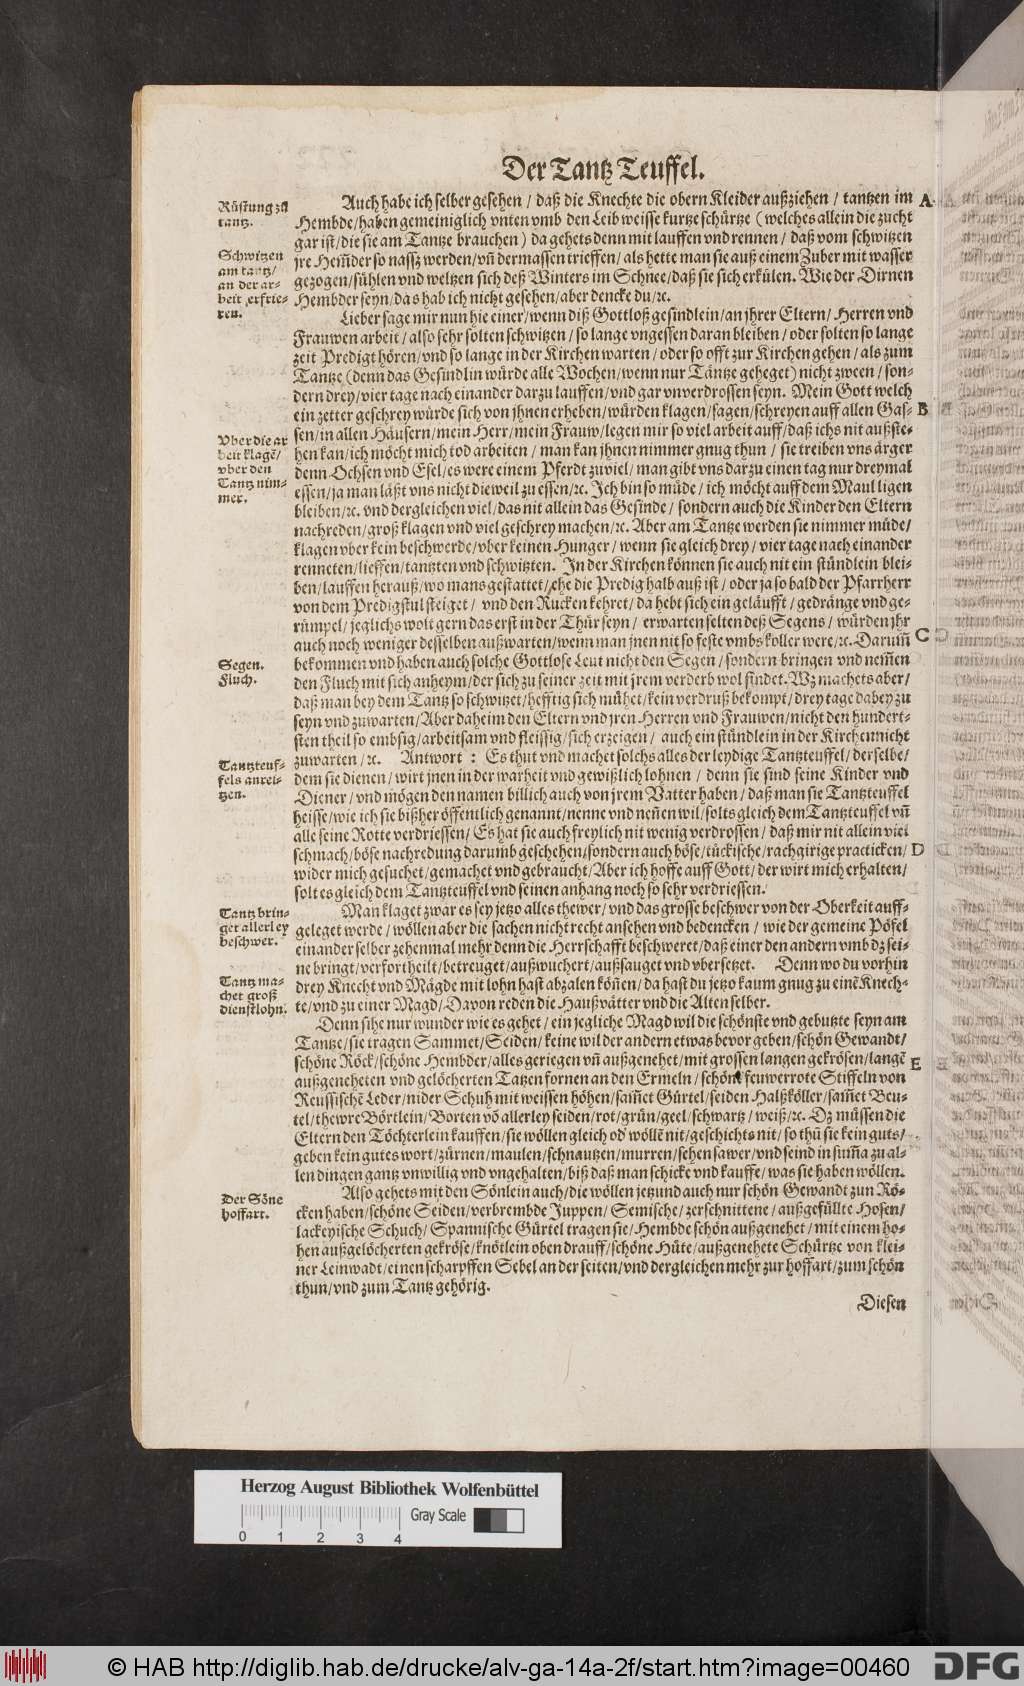 Der Tantz Teuffel.
Auch habe ich selber gesehen / daß die Knechte die obern Kleider außziehen / tantzen im
Hembde/haben gemeiniglich vnten vmb den Leib weisse kurtze schürtze (welches allein die zucht
gar ist/die sie am Tantze brauchen) da gehets denn mit lauffen vnd rennen / daß vom schwitzen
jre Hem̃der so nassz werden/vñ dermassen trieffen/als hette man sie auß einem Zuber mit wasser
gezogen/sühlen vnd weltzen sich deß Winters im Schnee/daß sie sich erkülen. Wie der Dirnen
Hembder seyn/das hab ich nicht gesehen/aber dencke du/ꝛc.
Rüstung zů
tantz.
Schwitzen
am tantz/
an der ar-
beit erfrie-
ren.
Lieber sage mir nun hie einer/wenn diß Gottloß gesindlein/an jhrer Eltern/Herren vnd
Frauwen arbeit/also sehr solten schwitzen/so lange vngessen daran bleiben/oder solten so lange
zeit Predigt hören/vnd so lange in der Kirchen warten/oder so offt zur Kirchen gehen/als zum
Tantze (denn das Gesindlin würde alle Wochen/wenn nur Täntze geheget) nicht zween/son-
dern drey/vier tage nach einander darzu lauffen/vnd gar vnverdrossen seyn. Mein Gott welch
ein zetter geschrey würde sich von jhnen erheben/würden klagen/sagen/schreyen auff allen Gas-
sen/in allen Häusern/mein Herr/mein Frauw/legen mir so viel arbeit auff/daß ichs nit außste-
hen kan/ich möcht mich tod arbeiten / man kan jhnen nimmer gnug thun / sie treiben vns ärger
denn Ochsen vnd Esel/es were einem Pferdt zuviel/man gibt vns darzu einen tag nur dreymal
essen/ja man läßt vns nicht dieweil zu essen/ꝛc. Ich bin so müde/ich möcht auff dem Maul ligen
bleiben/ꝛc. vnd dergleichen viel/das nit allein das Gesinde/sondern auch die Kinder den Eltern
nachreden/groß klagen vnd viel geschrey machen/ꝛc. Aber am Tantze werden sie nimmer müde/
klagen vber kein beschwerde/vber keinen Hunger/wenn sie gleich drey/vier tage nach einander
renneten/lieffen/tantzten vnd schwitzten. In der Kirchen können sie auch nit ein stündlein blei-
ben/lauffen herauß/wo mans gestattet/ehe die Predig halb auß ist/oder ja so bald der Pfarrherr
von dem Predigstul steiget/ vnd den Rucken kehret/da hebt sich ein geläufft/gedränge vnd ge-
rümpel/jeglichs wolt gern das erst in der Thür seyn/ erwarten selten deß Segens/ würden jhr
auch noch weniger desselben außwarten/wenn man jnen nit so feste vmbs koller were/ꝛc. Darum̃
bekommen vnd haben auch solche Gottlose Leut nicht den Segen/sondern bringen vnd nem̃en
den Fluch mit sich anheym/der sich zu seiner zeit mit jrem verderb wol findet. Wz machets aber/
daß man bey dem Tantz so schwitzet/hefftig sich mühet/kein verdruß bekompt/drey tage dabey zu
seyn vnd zuwarten/Aber daheim den Eltern vnd jren Herren vnd Frauwen/nicht den hundert-
sten theil so embsig/arbeitsam vnd fleissig/sich erzeigen/ auch ein stündlein in der Kirchen nicht
zuwarten/ꝛc. Antwort : Es thut vnd machet solchs alles der leydige Tantzteuffel/derselbe/
dem sie dienen/wirt jnen in der warheit vnd gewißlich lohnen / denn sie sind seine Kinder vnd
Diener/vnd mögen den namen billich auch von jrem Vatter haben/daß man sie Tantzteuffel
heisse/wie ich sie bißher öffentlich genannt/nenne vnd neñen wil/solts gleich dem Tantzteuffel vñ
alle seine Rotte verdriessen/Es hat sie auch freylich nit wenig verdrossen/daß mir nit allein viel
schmach/böse nachredung darumb geschehen/sondern auch böse/tückische/rachgirige practicken/
wider mich gesuchet/gemachet vnd gebraucht/Aber ich hoffe auff Gott/der wirt mich erhalten/
solt es gleich dem Tantzteuffel vnd seinen anhang noch so sehr verdriessen.
Vber die ar
beit klagẽ/
vber den
Tantz nim-
mer.
Segen.
Fluch.
Tantzteuf-
fels anrei-
tzen.
Man klaget zwar es sey jetzo alles thewer/vnd das grosse beschwer von der Oberkeit auff-
geleget werde/wöllen aber die sachen nicht recht ansehen vnd bedencken/wie der gemeine Pöfel
einander selber zehenmal mehr denn die Herrschafft beschweret/daß einer den andern vmb dz sei-
ne bringt/verfortheilt/betreuget/außwuchert/außsauget vnd vbersetzet. Denn wo du vorhin
drey Knecht vnd Mägde mit lohn hast abzalen köñen/da hast du jetzo kaum gnug zu einẽ Knech-
te/vnd zu einer Magd/Davon reden die Haußvätter vnd die Alten selber.
Tantz brin-
ger allerley
beschwer.
Tantz ma-
chet groß
dienstlohn.
Denn sihe nur wunder wie es gehet/ein jegliche Magd wil die schönste vnd gebutzte seyn am
Tantze/sie tragen Sammet/Seiden/keine wil der andern etwas bevor geben/schön Gewandt/
schöne Röck/schöne Hembder/alles geriegen vñ außgenehet/mit grossen langen gekrösen/langẽ
außgeneheten vnd gelöcherten Tatzen fornen an den Ermeln/schöne feuwerrote Stiffeln von
Reussischẽ Leder/nider Schuh mit weissen höhen/sam̃et Gürtel/seiden Halßköller/sam̃et Beu-
tel/thewre Börtlein/Borten võ allerley seiden/rot/grün/geel/schwartz/weiß/ꝛc. Dz müssen die
Eltern den Töchterlein kauffen/sie wöllen gleich od' wöllẽ nit/geschichts nit/so thů sie kein guts/
geben kein gutes wort/zürnen/maulen/schnautzen/murren/sehen sawer/vnd seind in sum̃a zu al-
len dingen gantz vnwillig vnd vngehalten/biß daß man schicke vnd kauffe/was sie haben wöllen.
Also gehets mit den Sönlein auch/die wöllen jetzund auch nur schön Gewandt zun Rö-
cken haben/schöne Seiden/verbrembde Juppen/Semische/zerschnittene/außgefüllte Hosen/
lackeyische Schuch/Spannische Gürtel tragen sie/Hembde schön außgenehet/mit einem ho-
hen außgelöcherten gekröse/knötlein oben drauff/schöne Hüte/außgenehete Schürtze von klei-
ner Leinwadt/einen scharpffen Sebel an der seiten/vnd dergleichen mehr zur hoffart/zum schön
thun/vnd zum Tantz gehörig.
Der Söne
hoffart.
Diesen
A
B
C
D
E
Herzog August Bibliothek Wolfenbüttel
Gray Scale
0 1 2 3 4
© HAB http://diglib.hab.de/drucke/alv-ga-14a-2f/start.htm?image=00460
DFG